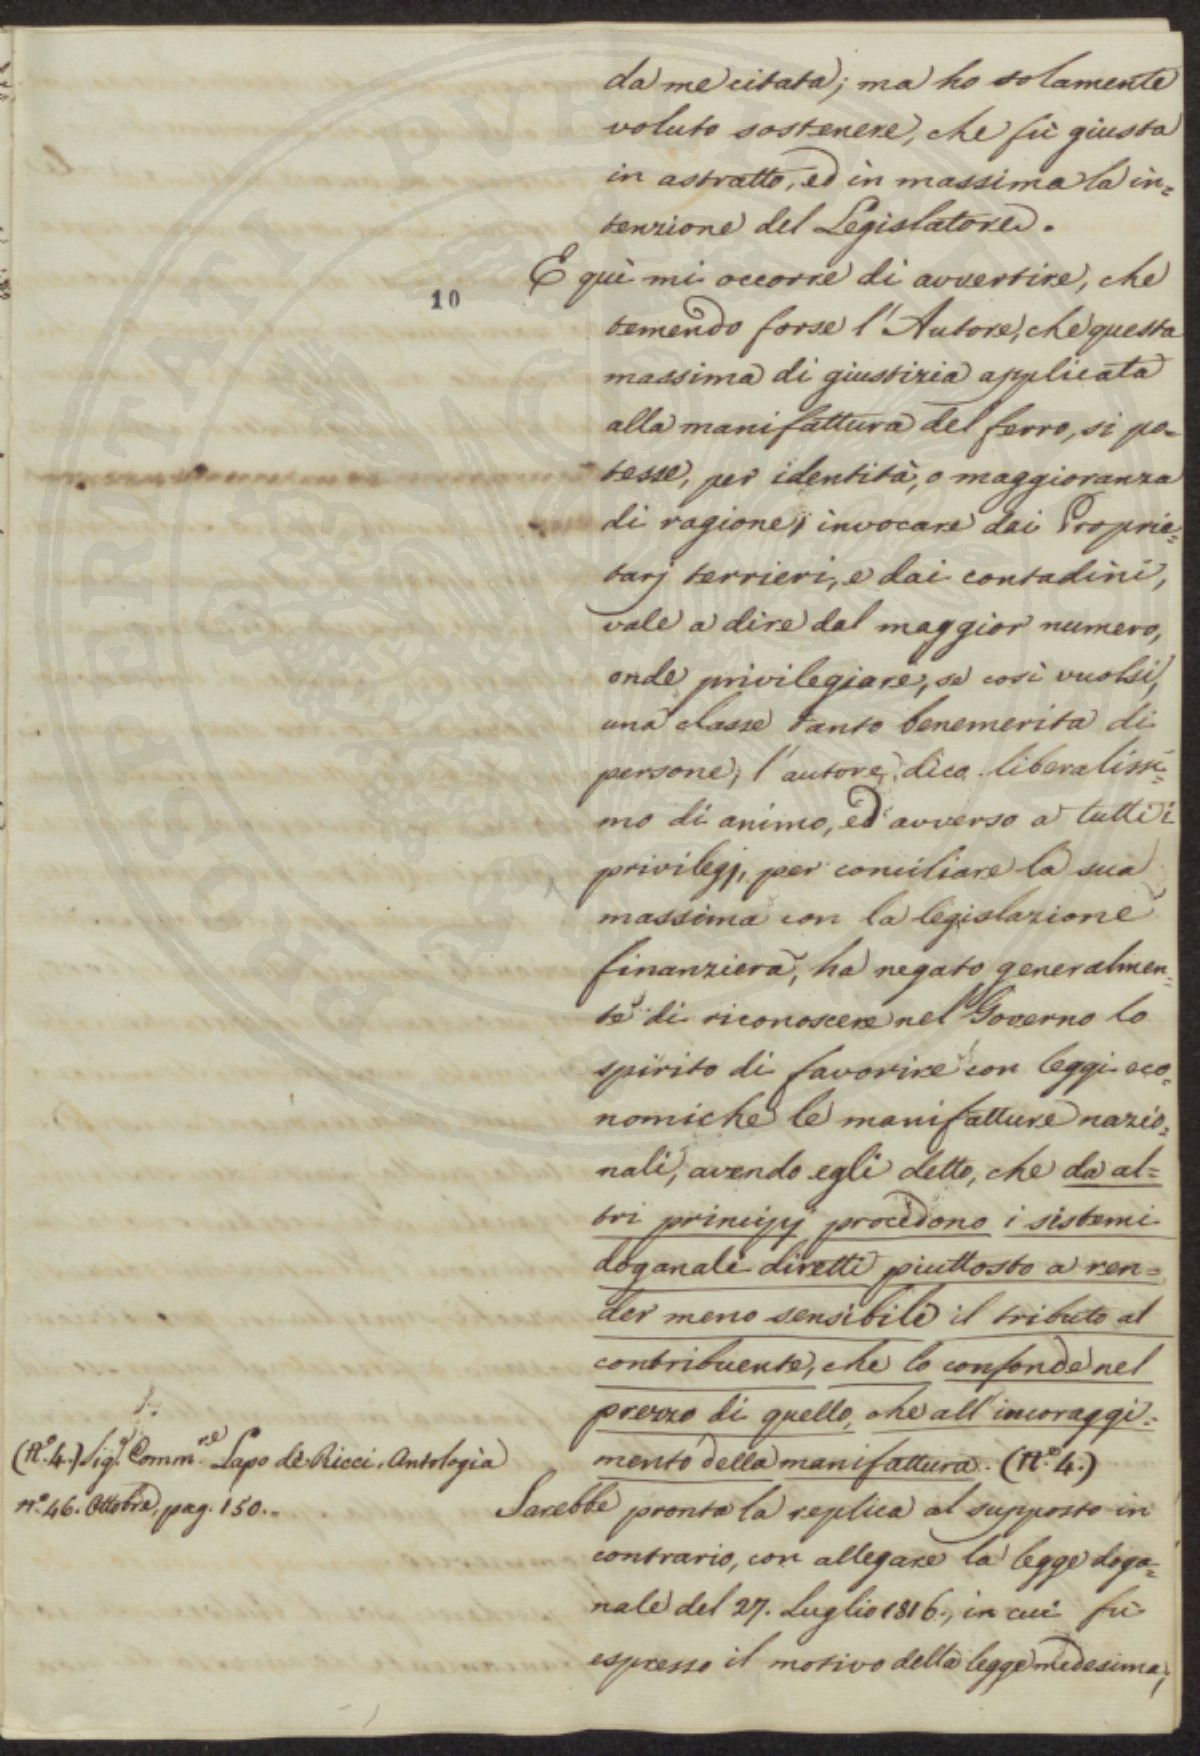 da me citata; ma ho solamente
voluto sostenere, che fù giusta
in astratto, ed in massima la in=
tenzione del Legislatore.
E quì mi occorre di avvertire, che
10
temendo forse l'Autore, che questa
massima di giustizia applicata
alla manifattura del ferro, si po=
tesse, per identità, o maggioranza
di ragione, invocare dai Proprie=
tarj terrieri, e dai contadini,
vale a dire dal maggior numero,
onde privilegiare, se così vuolsi,
una classe tanto benemerita di
persone; l'autore, dico liberalissi=
mo di animo, ed avverso a tutti i
privilegj, per conciliare la sua
massima con la legislazione
finanziera, ha negato generalmen=
te di riconoscere nel Governo lo
spirito di favorire con leggi eco=
nomiche le manifatture nazio=
nali, avendo egli detto, che da al=
tri principj procedono i sistemi
doganali diretti piuttosto a ren=
der meno sensibile il tributo al
contribuente, che lo confonde nel
prezzo di quello, che all'incoraggi=
mento della manifattura. (N.º 4.)
(N.º 4.) Sig.º Comm.re Lapo de Ricci. Antologia
nº 46. Ottobre, pag. 150..
Sarebbe pronta la replica al supposto in
contrario, con allegare la legge doga=
nale del 27. Luglio 1816., in cui fù
espresso il motivo della legge medesima;
PROSPERITATI PVBLI